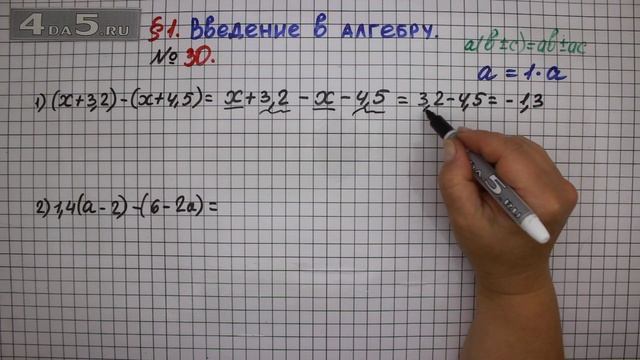 4DA5.RU
§1. Введение в алгебру.
№ 30.
a(b±c)=ab±ac
a = 1·a
1) (x+3,2)-(x+4,5)= x+3,2 - x - 4,5 = 3,2-4,5=-1,3
2) 1,4(a-2)-(6-2a)=